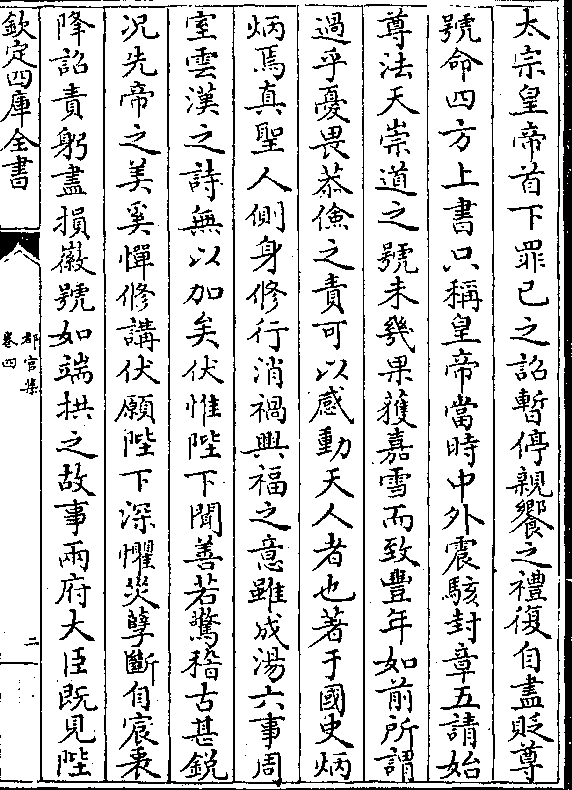 太宗皇帝首下罪己之詔暫停親饗之禮復自盡貶尊
號命四方上書只稱皇帝當時中外震駭封章五請始
尊法天崇道之號未幾果獲嘉雪而致豐年如前所謂
過乎憂畏恭儉之責可以感動天人者也著于國史炳
炳焉真聖人側身修行消禍興福之意雖成湯六事周
室雲漢之詩無以加矣伏惟陛下聞善若驚稽古甚銳
況先帝之美奚憚修講伏願陛下深懼災孽斷自宸衷
降詔責躬盡損徽號如端拱之故事兩府大臣既見陛
欽定四庫全書
都官集
卷四
二